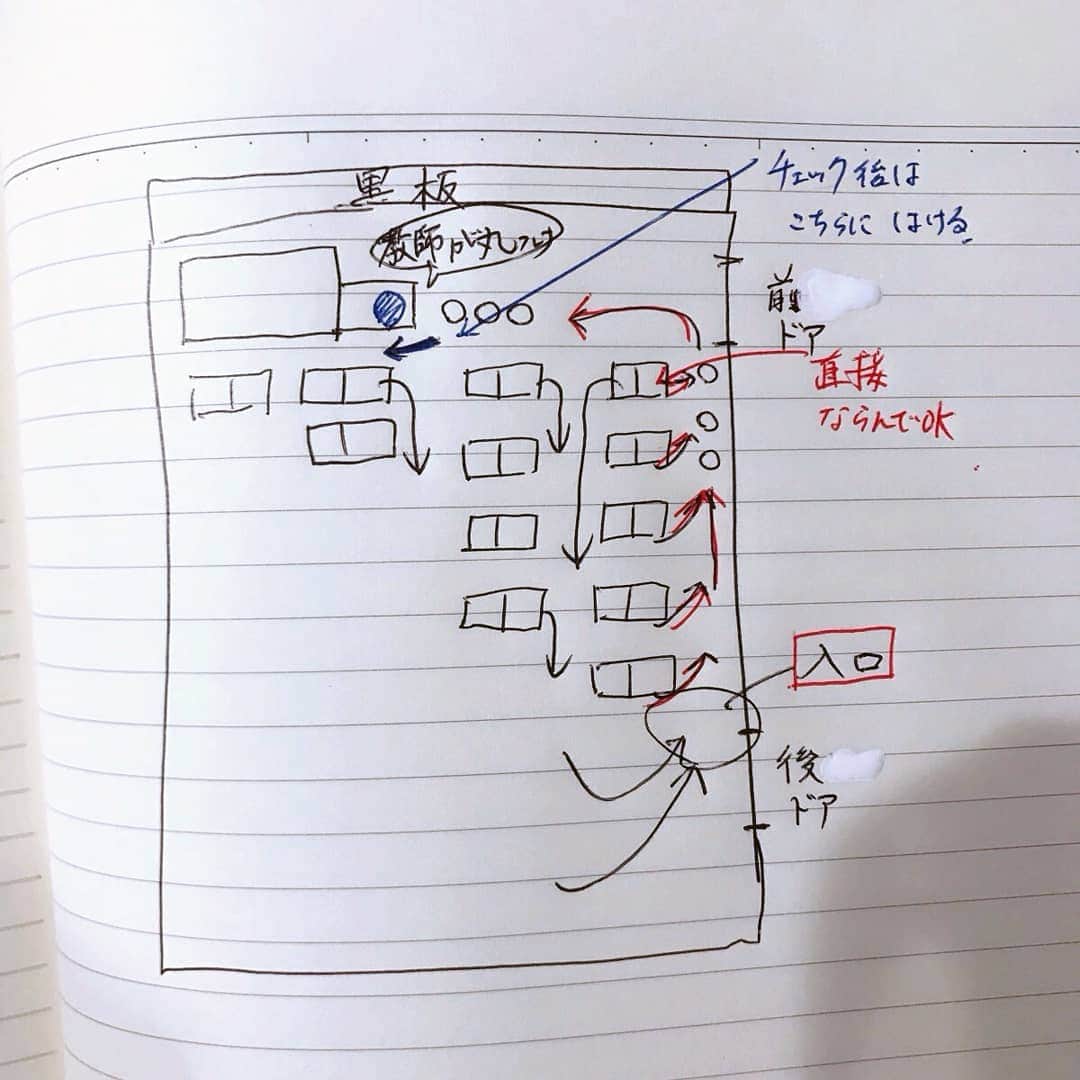 黒板
教師が丸つけ
チェック後は
こちらにはける。
前
ドア
直接
ならんでOK
入口
後
ドア